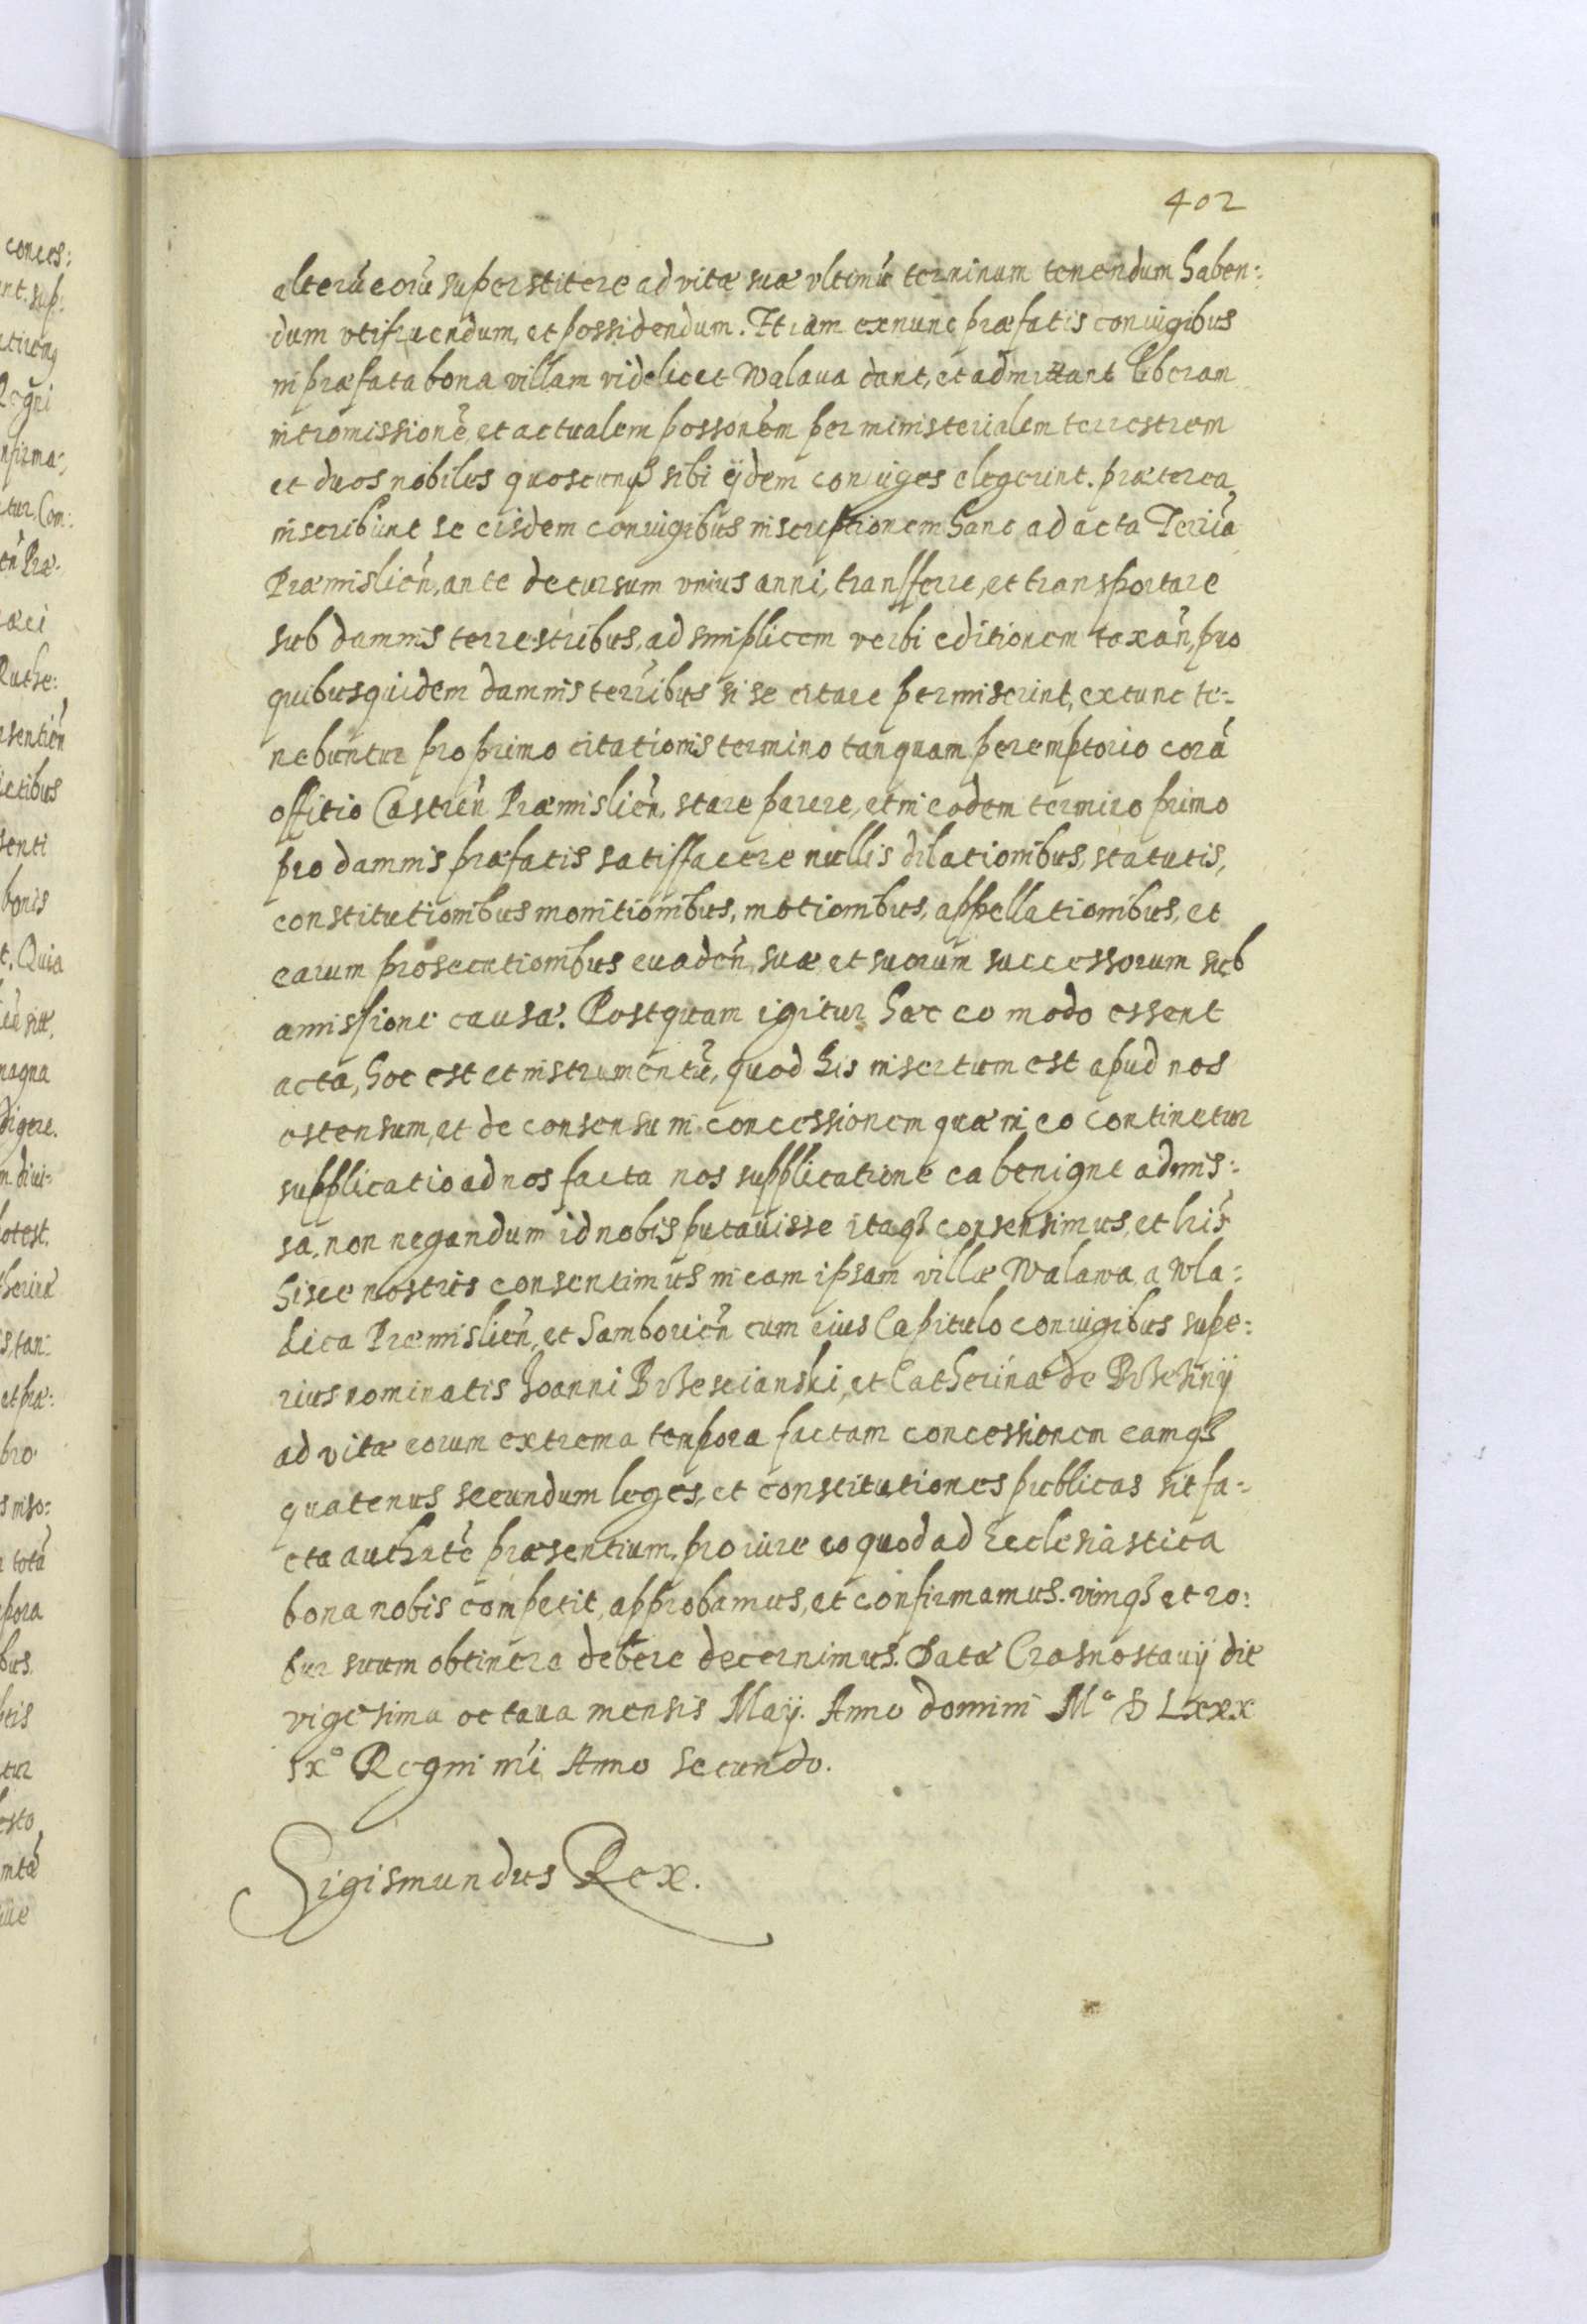 402
alterũ eorũ superstitere ad vitæ suæ vltimũ terminum tenendum haben:
dum vtifruendum, et possidendum. Et iam ex nunc præfatis coniugibus
in præfata bona villam videlicet Walaua dant, et admittant liberam
intromissionẽ, et actualem possonẽm per ministerialem terrestrem
et duos nobiles quoscunqȝ sibi ijdem coniuges elegerint. præterea
inscribunt se eisdem coniugibus inscriptionem hanc ad acta Terria
Præmislien̄, ante decursum vnius anni, transferre, et transportare
sub damnis terrestribus, ad simplicem verbi editionem taxan̄, pro
quibusquidem damnis terribus si se citare permiserint, extunc te:
nebuntur pro primo citationis termino tanquam peremptorio corã
offitio Castren̄ Præmislien̄, stare parere, et in eodem termino primo
pro damnis præfatis satisfacere nullis dilationibus, statutis,
constitutionibus monitionibus, motionibus, appellationibus, et
earum prosecutionibus euaden̄, suæ et suorum successorum sub
amissione causæ. Postquam igitur hæc eo modo essent
acta, hoc est et instrumentũ, quod his insertum est apud nos
ostensum, et de consensu in concessionem quæ in eo continetur
supplicatio ad nos facta nos supplicatione ea benigne admis:
sa, non negandum id nobis putauisse itaqȝ consensimus, et hr̃is
hisce nostris consentimus in eam ipsam villæ Walawa, a Wla:
dica Præmislien̄, et Samborien̄ cum eius Capitulo coniugibus supe:
rius nominatis Joanni Brzescianski, et Catherinæ de Brzezinij
ad vitæ eorum extrema tempora factam concessionem eamqȝ
quatenus secundum leges, et constitutiones publicas sit fa:
cta authrtẽ præsentium, pro iure eo quod ad Ecclesiastica
bona nobis competit, approbamus, et confirmamus. vimqȝ et ro:
bur suum obtinere debere decernimus. Datæ Crasnostauij die
vigesima octaua mensis Maij. Anno domini Mº D Lxxx
ixº Regni nr̃i Anno secundo.
Sigismundus Rex.